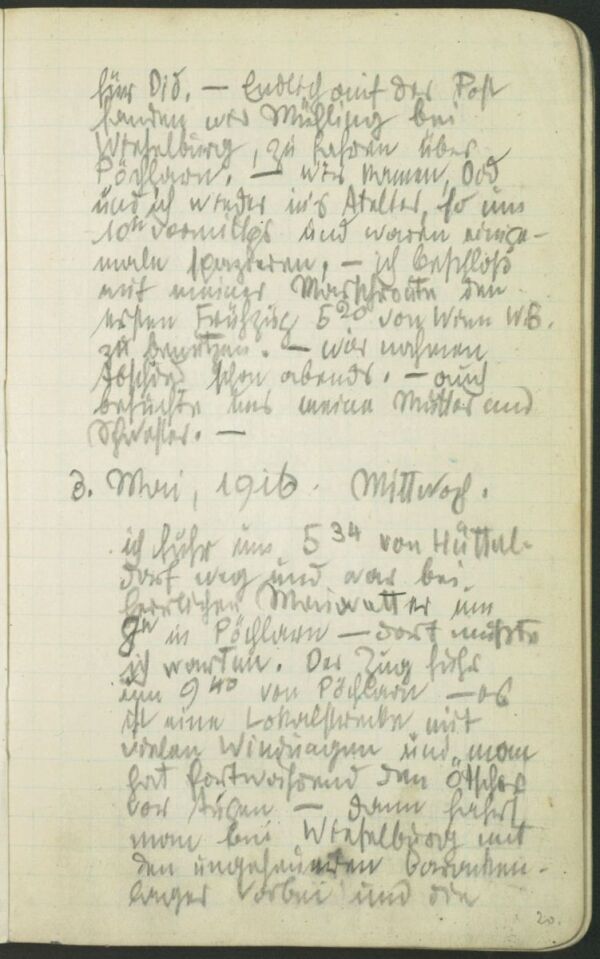 für Did. — Endlich auf der Post
fanden wir Mühling bei
Wieselburg, zu fahren über
Pöchlarn. — wir kamen,
und ich wieder ins Atelier, so um
10h vormittgs und waren einige-
male spazieren. — ich beschloß
mit meiner Marschroute den
ersten Frühzug 5 20 von Wien WB.
zu benützen. — wir nahmen
Abschied schon abends. — auch
besuchte uns meine Mutter und
Schwester. —
3. Mai, 1916. Mittwoch.
ich fuhr um 5 34 von Hüttel-
dorf weg und war bei
herrlichen Maiwetter um
8h in Pöchlarn — dort mußte
ich warten. Der Zug fuhr
um 9 40 von Pöchlarn — es
ist eine Lokalstrecke mit
vielen Windungen und man
hat fortwährend den Ötscher
vor Augen — dann fährt
man bei Wieselburg mit
den ungeheueren Baraken-
lager vorbei und die
20.